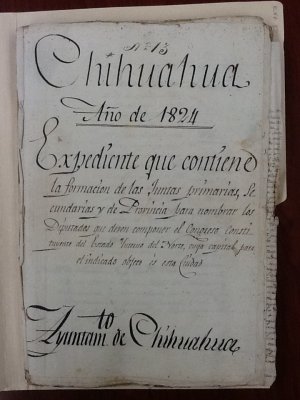 Nº 13
Chihuahua
Año de 1824
Expediente que contiene
la formacion de las Juntas primarias, Se
cundarias y de Provincia para nombrar los
Diputados que deven componer el Congreso Consti
tuyente del Estado Interno del Norte, cuya capital para
el indicado objeto es esta Ciudad
Ayuntam.to de Chihuahua